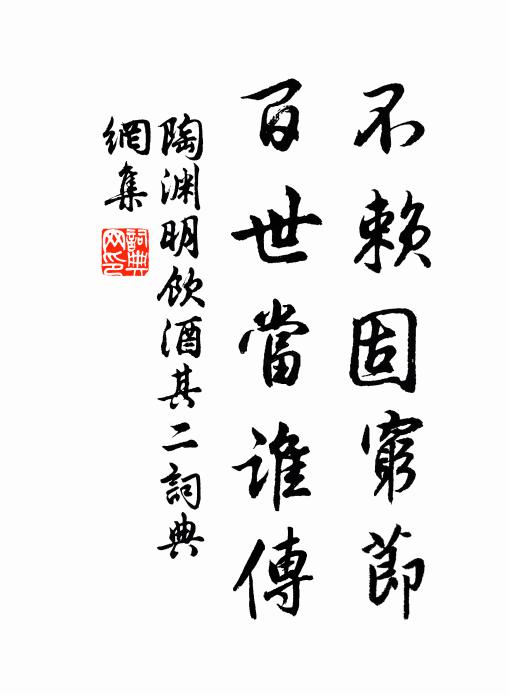 不賴固窮節
百世當誰傳
陶渊明飲酒其二詞典
網集
詞典網印